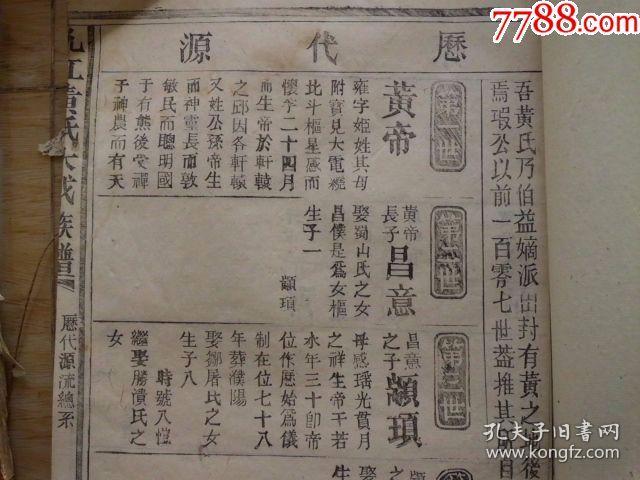 7788.com
歷代源
吾黃氏乃伯益嫡派出封有黃之
後
焉瑕公以前一百零七世蓋推其
自
第一世
黃帝
雍字姬姓其母
附寶見大電繞
北斗樞星感而
懷孕二十四月
而生帝於軒轅
之邱因名軒轅
又姓公孫帝生
而神靈長而敦
敏民而聰明國
于有熊後受禪
于神農而有天
第二世
黃帝
長子
昌意
娶蜀山氏之女
昌僕是爲女樞
生子一
顓頊
第三世
昌意
之子
顓頊
母感瑤光貫月
之祥生帝于若
水年三十卽帝
位作歷始爲儀
制在位七十八
年葬濮陽
娶鄒屠氏之女
生子八
時號八愷
繼娶勝濆氏之
女
九江黃氏大成族譜
歷代源流總系
孔夫子旧书网
kongfz.com